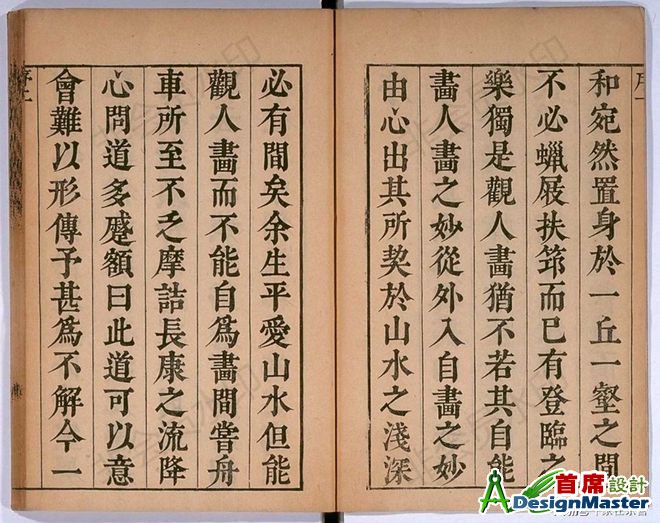 和宛然置身於一丘一壑之間
不必蠟屐扶筇而已有登臨之
樂獨是觀人畵猶不若其自能
畵人畵之妙從外入自畵之妙
由心出其所契於山水之淺深
必有間矣余生平愛山水但能
觀人畵而不能自爲畵間嘗舟
車所至不乏摩詰長康之流降
心問道多蹙額曰此道可以意
會難以形傳予甚爲不解今一
序二
首席設計
ADesignMaster